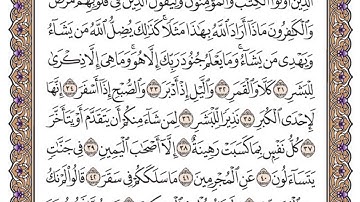 الَّذِينَ أُوتُوا الْكِتَٰبَ وَالْمُؤْمِنُونَ وَلِيَقُولَ الَّذِينَ فِي قُلُوبِهِم مَّرَضٌ
وَالْكَٰفِرُونَ مَاذَا أَرَادَ اللَّهُ بِهَٰذَا مَثَلًا ۚ كَذَٰلِكَ يُضِلُّ اللَّهُ مَن يَشَاءُ
وَيَهْدِي مَن يَشَاءُ ۚ وَمَا يَعْلَمُ جُنُودَ رَبِّكَ إِلَّا هُوَ ۚ وَمَا هِيَ إِلَّا ذِكْرَىٰ
لِلْبَشَرِ ٣١ كَلَّا وَالْقَمَرِ ٣٢ وَالَّيْلِ إِذْ أَدْبَرَ ٣٣ وَالصُّبْحِ إِذَا أَسْفَرَ ٣٤ إِنَّهَا
لَإِحْدَى الْكُبَرِ ٣٥ نَذِيرًا لِّلْبَشَرِ ٣٦ لِمَن شَاءَ مِنكُمْ أَن يَتَقَدَّمَ أَوْ يَتَأَخَّرَ
٣٧ كُلُّ نَفْسٍ بِمَا كَسَبَتْ رَهِينَةٌ ٣٨ إِلَّا أَصْحَٰبَ الْيَمِينِ ٣٩ فِي جَنَّٰتٍ
يَتَسَاءَلُونَ ٤٠ عَنِ الْمُجْرِمِينَ ٤١ مَا سَلَكَكُمْ فِي سَقَرَ ٤٢ قَالُوا لَمْ نَكُ